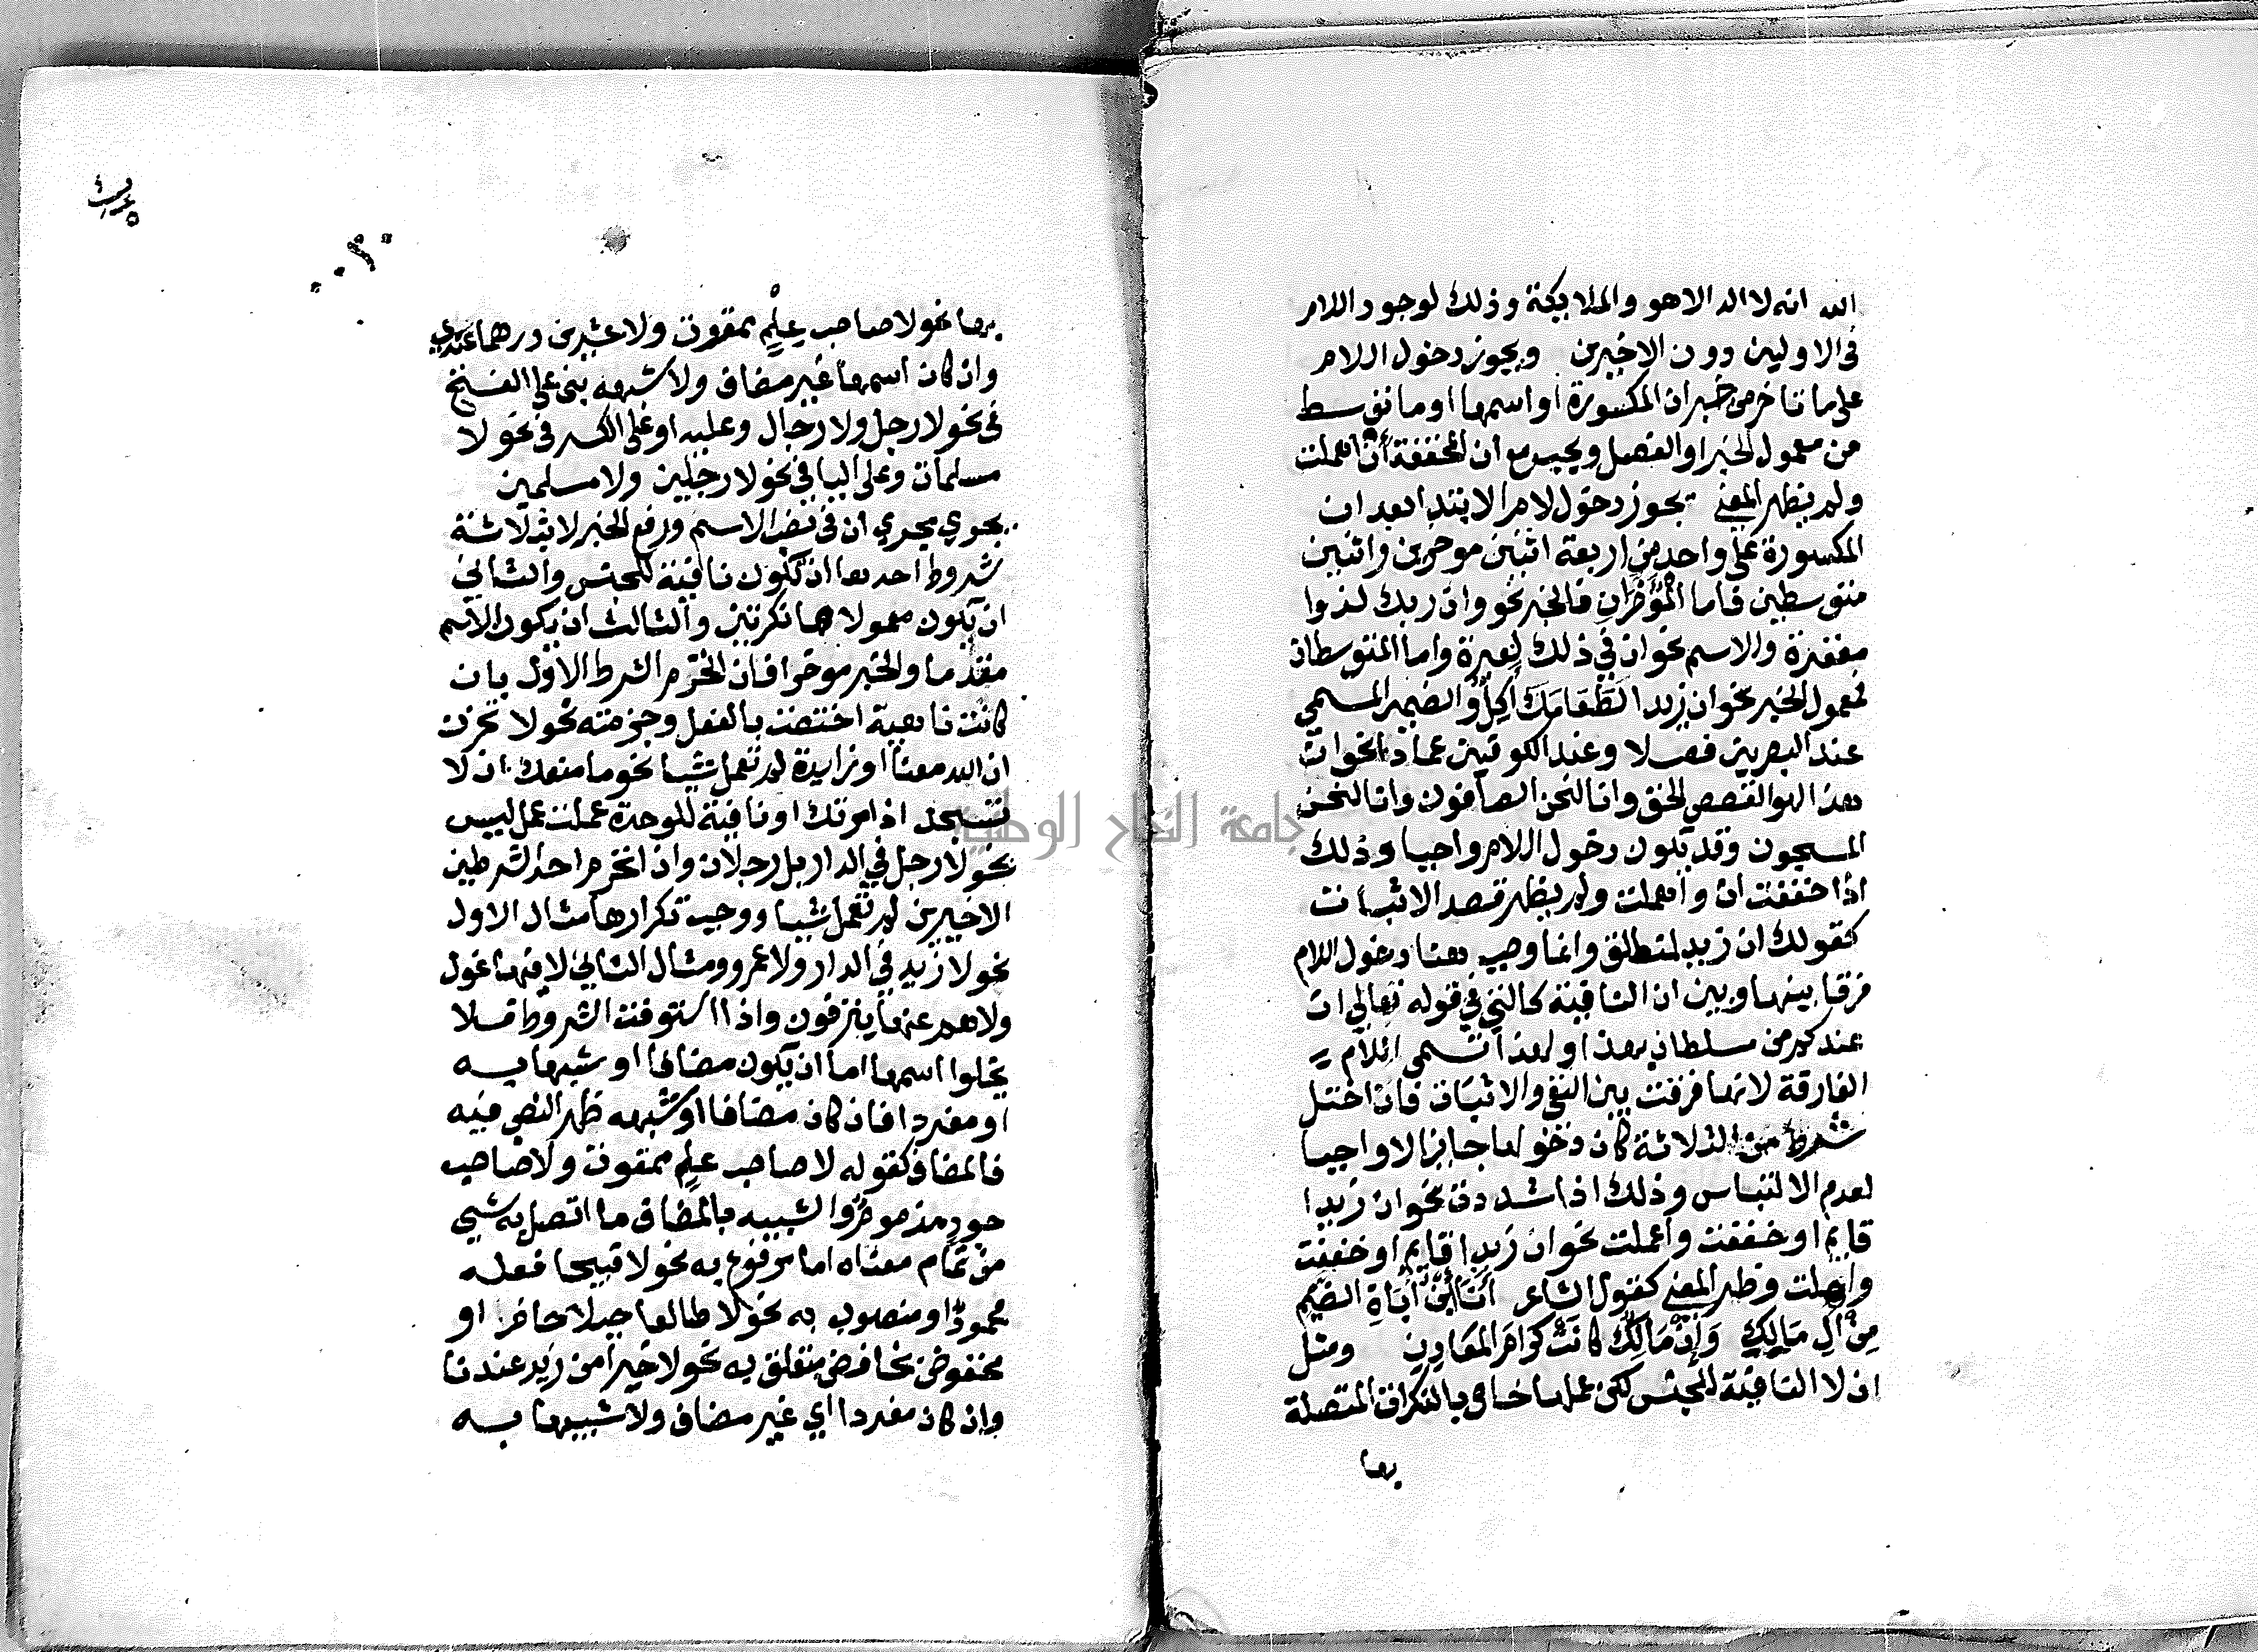 الله انه لا اله الا هو والملايكة وذلك لوجود اللام
في الاوليين دون الاخيرين ويجوز دخول اللام
على ما تاخر من خبر ان المكسورة او اسمها او ما توسط
من معمول الخبر او الفصل ويجب مع ان المخففة ان اهملت
ولم يظهر المعني يجوز دخول لام الابتدا بعد ان
المكسورة على واحد من اربعة اثنين موخرين واثنين
متوسطين فاما المُؤَخَّرانِ فالخبر نحو وان ربك لذوا
مغفرة والاسم نحو ان في ذلك لعبرة واما المتوسطان
فمعمول الخبر نحو ان زيدا لَطَعَامَكَ آكِلٌ والضمير المسمي
عند البصريين فصلا وعند الكوفيين عمادا نحو ان
هذا لهو القصص الحق وانا لنحن الصافون وانا لنحن
المسبحون وقد يكون دخول اللام واجبا وذلك
اذا خففت ان واهملت ولم يظهر قصد الاثبات
كقولك ان زيد لمنطلق وانما وجب هنا دخول اللام
فرقا بينها وبين ان النافية كالتي في قوله تعالي ان
عندكم من سلطان بهذا ولهذا تسمى اللام
الفارقة لانها فرقت بين النفي والاثبات فان اختل
شرط من الثلاثة كان دخولها جايزا لا واجبا
لعدم الالتباس وذلك اذا شددت نحو ان زيدا
قايم او خففت واعملت نحو ان زيدا قايم او خففت
واهملت وظهر المعني كقول الشاعر أنا ابن أُبَاةِ الضيم
مِنْ آلِ مَالِكٍ وَإِنْ مَالِكٌ كانَتْ كرامَ المَعَادِنِ ومثل
ان لا النافية للجنس لكن عملها خاص بالنكرات المتصلة
بها
بها نحو لا صاحب عِلْمٍ ممقوت ولا عشرين درهما عندي
وان كان اسمها غير مضاف ولا شبهه بني على الفتح
في نحو لا رجل ولا رجال وعليه او على الكسر في نحو لا
مسلمات وعلى اليا في نحو لا رجلين ولا مسلمين
يجري مجري ان في نصب الاسم ورفع الخبر لا بثلاثة
شروط احدها ان تكون نافية للجنس والثاني
ان يكون معمولاها نكرتين والثالث ان يكون الاسم
مقدما والخبر موخرا فان انخرم الشرط الاول بان
كانت ناهية اختصت بالفعل وجزمته نحو لا تحزن
ان الله معنا او زايدة لم تعمل شيا نحو ما منعك ان لا
تسجد اذ امرتك او نافية للوحدة عملت عمل ليس
نحو لا رجل في الدار بل رجلان وان انخرم احد الشرطين
الاخيرين لم تعمل شيا ووجب تكرارها مثال الاول
نحو لا زيد في الدار ولا عمرو ومثال الثاني لا فيها غول
ولا هم عنها ينزفون واذا استوفت الشروط فلا
يخلوا اسمها اما ان يكون مضافا او شبيها به
او مفردا فان كان مضافا او شبهه ظهر النصب فيه
فالمضاف كقوله لا صاحب علم ممقوت ولا صاحب
جود مذموم والشبيه بالمضاف ما اتصل به شي
من تمام معناه اما مرفوع به نحو لا قبيحا فعله
محمودٌ او منصوب به نحو لا طالعا جبلا حاضر او
مخفوض بخافض متعلق به نحو لا خيرا من زيد عندنا
وان كان مفردا اي غير مضاف ولا شبيها به
جامعة النجاح الوطنية